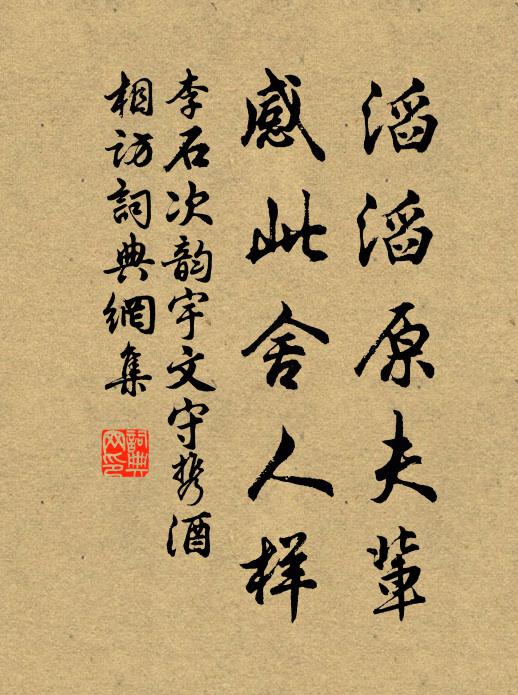 滔滔原夫輩
感此舍人样
李石次韵宇文守携酒
相访詞典網集
詞典网印